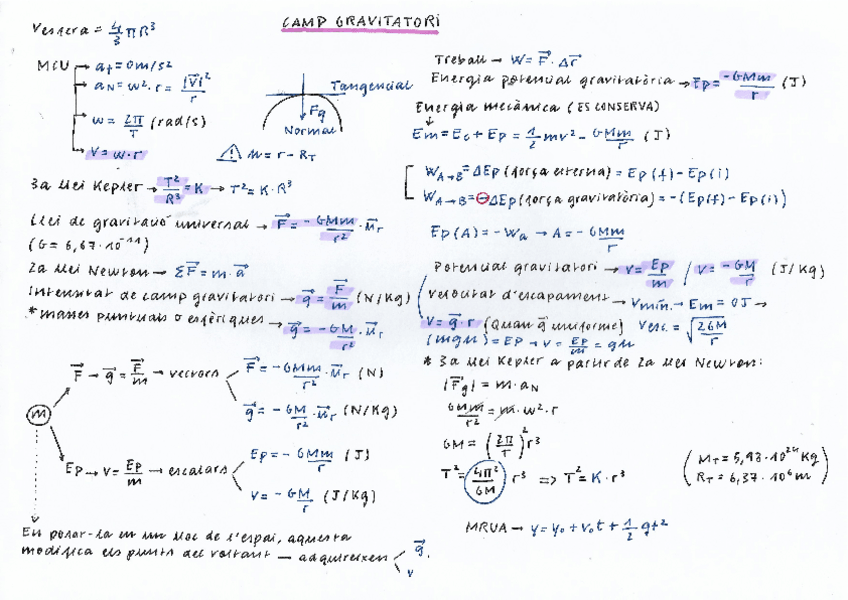 CAMP GRAVITATORI
Vesfera = 4/3 πR³
MCU → at = 0 m/s²
→ aN = w²·r = |v⃗|²/r
→ w = 2π/T (rad/s)
→ v = w·r
Tangencial
Fg
Normal
⚠ h = r - RT
3a llei Kepler → T²/R³ = K → T² = K·R³
Llei de gravitació universal → F⃗ = - GMm/r² · u⃗r
(G = 6,67·10⁻¹¹)
2a llei Newton → ΣF⃗ = m·a⃗
Intensitat de camp gravitatori → g⃗ = F⃗/m (N/Kg)
*masses puntuals o esfèriques → g⃗ = - GM/r² · u⃗r
m
F⃗ → g⃗ = F⃗/m → vectors
F⃗ = - GMm/r² · u⃗r (N)
g⃗ = - GM/r² · u⃗r (N/Kg)
Ep → V = Ep/m → escalars
Ep = - GMm/r (J)
V = - GM/r (J/Kg)
En posar-la en un lloc de l'espai, aquesta
modifica els punts del voltant → adquireixen
g⃗.
v
Treball → W = F⃗ · Δr⃗
Energia potencial gravitatòria → Ep = -GMm/r (J)
Energia mecànica (ES CONSERVA)
Em = Ec + Ep = 1/2 mv² - GMm/r (J)
WA→B = ΔEp (força externa) = Ep(f) - Ep(i)
WA→B = -ΔEp (força gravitatòria) = -(Ep(f) - Ep(i))
Ep(A) = -W∞ → A = - GMm/r
Potencial gravitatori → V = Ep/m / V = -GM/r (J/Kg)
Velocitat d'escapament → Vmín. → Em = 0J →
Vesc. = √2GM/r
V = g⃗·r (Quan g⃗ uniforme)
(mgh) = EP → V = EP/m = gh
* 3a llei Kepler a partir de 2a llei Newton:
|F⃗g| = m·aN
GMm/r² = m·w²·r
GM = (2π/T)² r³
T² = 4π²/GM r³ => T² = K·r³
(MT = 5,98·10²⁴ Kg
RT = 6,37·10⁶ m)
MRUA → y = y₀ + v₀t + 1/2 gt²